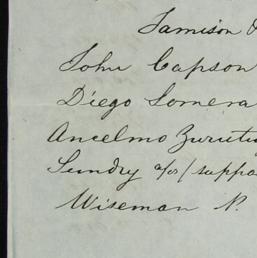 Jamison &
John Capson
Diego Somera
Ancelmo Zurutu
Sundry a/cs / suppo
Wiseman P.